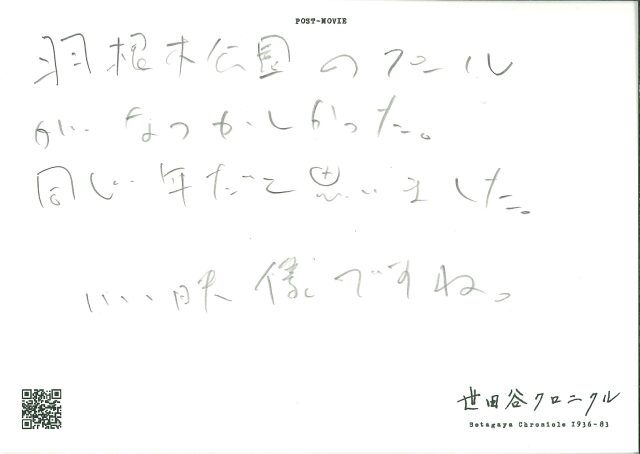 POST-MOVIE
羽根木公園のプール
が なつかしかった。
同じ年だと思いました。
いい映像ですね。
世田谷クロニクル
Setagaya Chronicle 1936-83